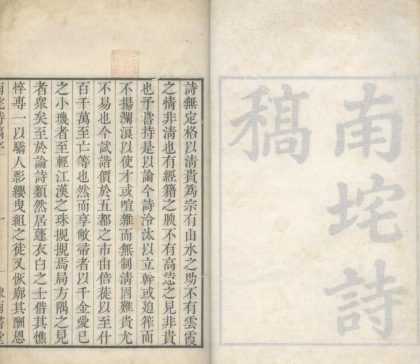 南垞詩
稿
詩無定格以清貴為宗有山水之助不有雲霞
之情非清也有經籍之腴不有高㴱之見非貴
也予嘗持是以論今詩汾汰以立幹或迫筰而
不揚瀾浪以使才或喧雜而無制清固難貴尤
不易也今試諧價於五都之市由倍徙以至什
百千萬至亡等也然而享敝帚者以千金愛已
之小璣者至輕江漢之珠規規焉局方隅之見
者眾矣至於論詩頹然居蓬衣白之士借其憔
悴專一以驕人影纓曳組之徒又恢廓其酬恩
南垞詩稿序
一